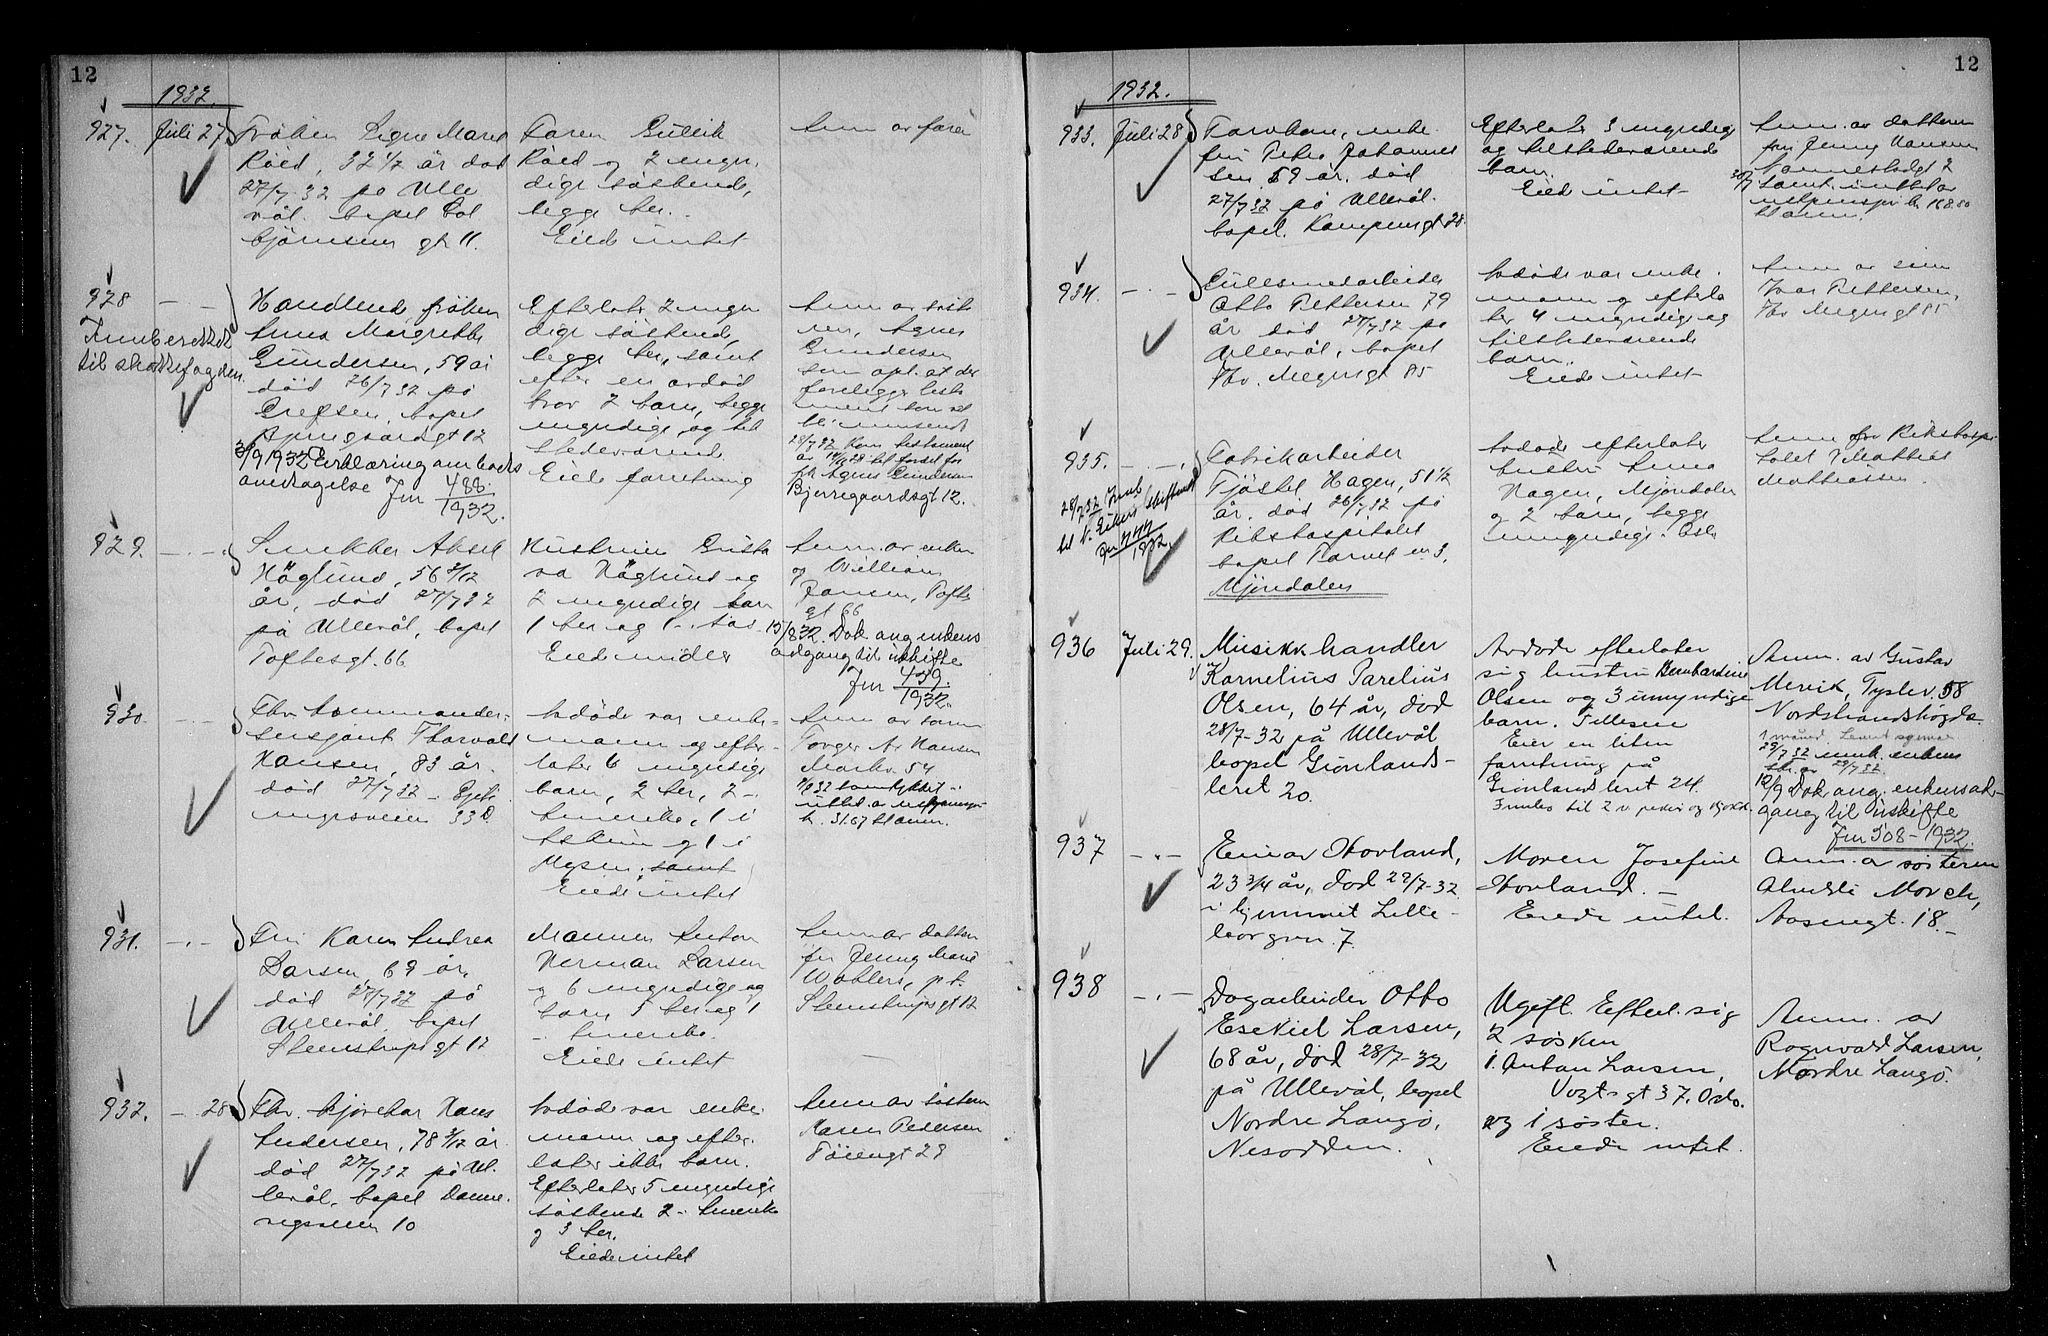 12
1932.
927.
Juli 27
Frøken Signe Marie
Röed, 32 1/2 år død
27/7 32 på Ulle
vål. bopel Col
bjørnsens gt 11.
Faren Gullik
Röed og 2 myn.
dige søskende,
begge her.
Eiede intet
Anm av faren
928
— —
Innberettet
til skattefogden.
Handlende, frøken
Anna Margrethe
Gundersen, 59 år
død 26/7 32 på
Grefsen, bopel
Bjerregaardsgt 12
3/9 1932 Erklæring om boets
overtagelse Jnr 488
1932.
Efterlater 2 myn
dige søskende,
begge her, samt
efter en avdød
bror 2 barn, begge
myndige, og til
stedeværende.
Eiede forretning
Anm av søste
ren, Agnes
Gundersen
som opl. at der
foreligger testa
ment som vil
bli innsendt
28/7 32 Kom testament
til forsel for
frk Agnes Gundersen
Bjerregaardsgt 12.
929.
— . — .
Snekker Aksel
Höglund, 56 3/12
år, død 27/7 32
på Ullevål, bopel
Toftesgt. 66
Hustruen Gusta
va Höglund og
2 myndige barn
1 her og 1
Eiede midler
Anm. av enken
og William
Jansen, Toftes
gt 66
15/8 32. Dok ang enkens
adgang til uskifte
Jnr 439.
1932.
930.
— . —
Fhv. kommander-
sersjant Thorvald
Hansen, 83 år.
død 27/7 32 — Gjeit
myrsveien 33D.
Avdøde var enke-
mann og efter-
later 6 myndige
barn, 2 her, 2 i
Amerika, 1 i
Askim og 1 i
Mysen. samt
Eiede intet
Anm av sønn
Torger A. Hansen
Markv. 54
kr. 31.67 til anm.
931.
— . —
Fru Karen Andrea
Larsen, 69 år,
død 27/7 32 på
Ullevål, bopel
Stenstrupsgt 12
Mannen Anton
Herman Larsen
og 6 myndige og
barn 5 her og 1
i Amerika.
Eiede intet
Anm av datter
fru Jenny Marie
Wahlers, p.t.
Stenstrupsgt 12
932.
— 28
Fhv. kjørekar Hans
Andersen, 78 3/12 år.
død 27/7 32 på Ul.
levål, bopel Danne.
vigsveien 10
Avdøde var enke
mann og efter.
later ikke barn.
Efterlater 5 myndige
søskende 2 i Amerika
og 3 her.
Eiede intet
Anm av søsteren
Karen Pedersen
Töiengt 28
12
1932.
933.
Juli 28
Forvhen, enke
fru Petra Johannes
sen 59 år. død
27/7 32 på Ullevål.
bopel. Kampensgt 28.
Efterlater 3 myndige
og tilstedeværende
barn.
Eiede intet
Anm. av datteren
fru Jenny Hansen
Nannestadgt 2
kr 168.50
til anm.
934.
— . —
Gullesmedarbeider
Otto Pettersen 79
år død 27/7 32 på
Ullevål, bopel
Thv. Meyersgt 85
Avdøde var enke.
mann og efterla
ter 4 myndige og
tilstedeværende
barn.
Eiede intet
Anm av sønn
Ivar Pettersen,
Thv Meyersgt 85
935.
— . — .
28/7 32 Innb
til N. Eikers skifterett
Jnr
1932.
Fabrikarbeider
Tjöstel Hagen, 51 1/2
år, død 26/7 32 på
Rikshospitalet
bopel Parvel en 3,
Mjøndalen
Avdøde efterlater
hustru Anna
Hagen, Mjøndalen
og 2 barn, begge
umyndige. Oslo
Anm fra Rikshospi
talet v/Mathias
Mathiassen.
936
Juli 29.
Musikkhandler
Kornelius Parelius
Olsen, 64 år, død
28/7-32 på Ullevål
bopel Grønlands-
leret 20.
Avdøde efterlater
sig hustru Bernhardine
Olsen og 3 umyndige
barn. Tillesen
Eier en liten
forretning på
Grønlandsleret 24.
Anm. av Gustav
Mervik, Tyslev. 58
Nordstrandshøgda.
29/7 32 innk. enken
10/9 Dok ang. enkens ad-
gang til uskifte
Jnr 508 - 1932.
937
— . —
Einar Hovland,
23 3/4 år, død 29/7-32
i hjemmet Lille-
borgvn. 7.
Moren Josefine
Hovland. —
Eiede intet.
Anm. av søsteren
Almhli Morch,
Aasengt. 18.—
938
— . —
Dagarbeider Otto
Esekiel Larsen,
68 år, død 28/7-32
på Ullevål, bopel
Nordre Langø,
Nesodden.
Ugift. Efterl. sig
2 søsken
1. Anton Larsen,
Vogtsgt 37. Oslo.
og 1 søster.
Eiede intet.
Anm. av
Ragnvald Larsen,
Nordre Langø.